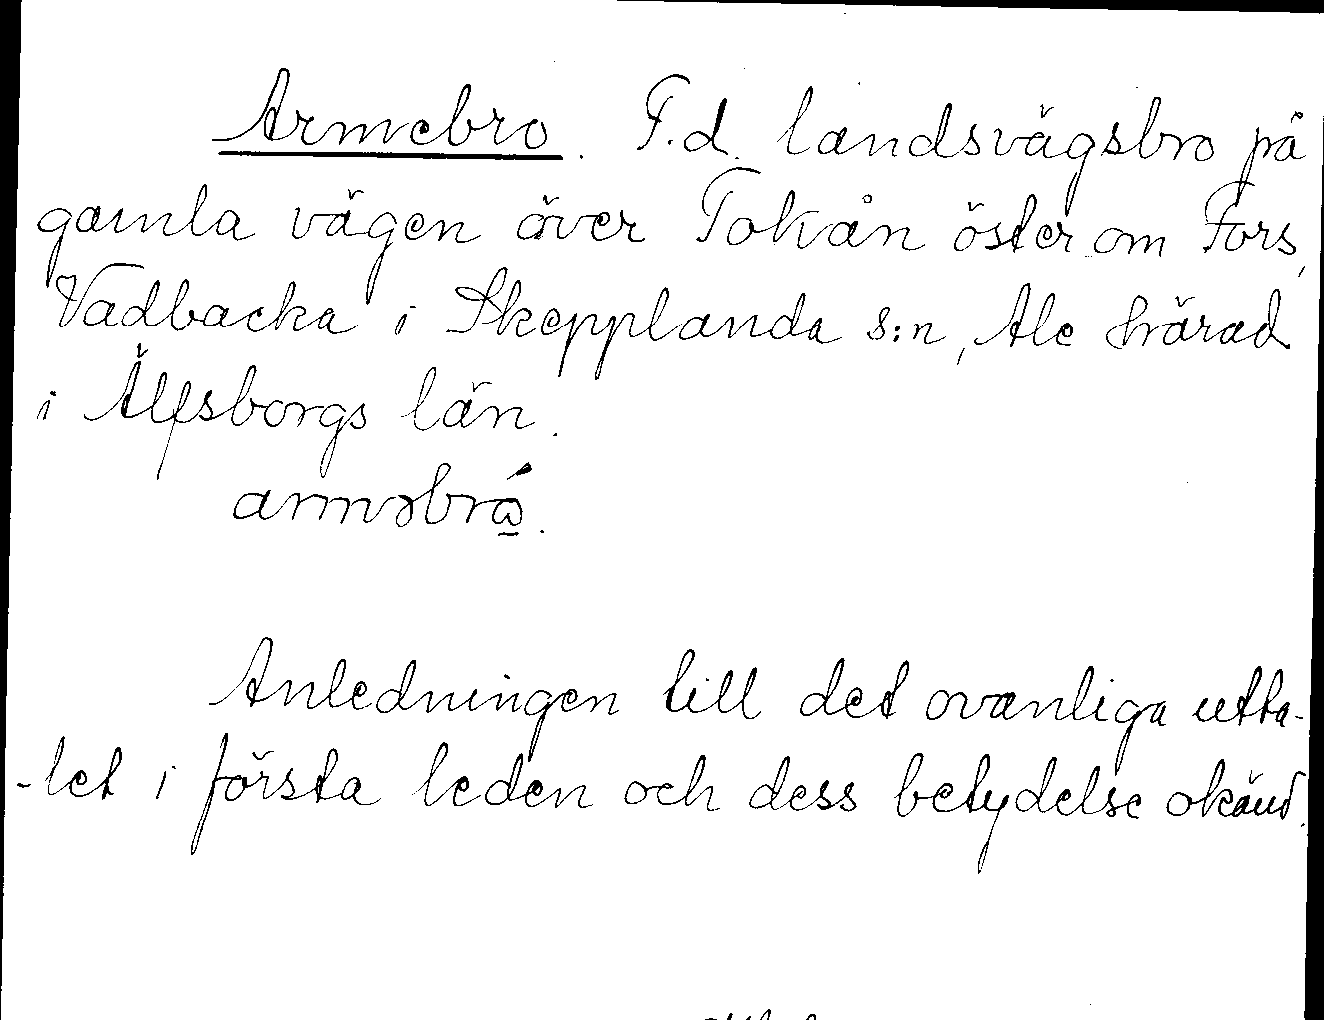 Armebro. F.d. landsvägsbro på
gamla vägen över Tokån öster om Fors,
Vadbacka i Skepplanda s:n, Ale härad
i Älfsborgs län.
arməbrώ̱.
Anledningen till det ovanliga utta-
-let i första leden och dess betydelse okänd.